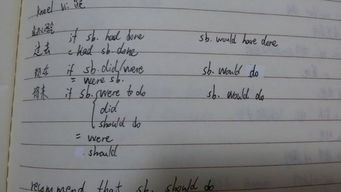 kneel vi. 跪
if sb. had done sb. would have done
过去 = Had sb. done
现在 if sb. did/were sb. would do
= were sb.
将来 if sb. were to do sb. would do
did
should do
= were
should
recommend that sb. should do